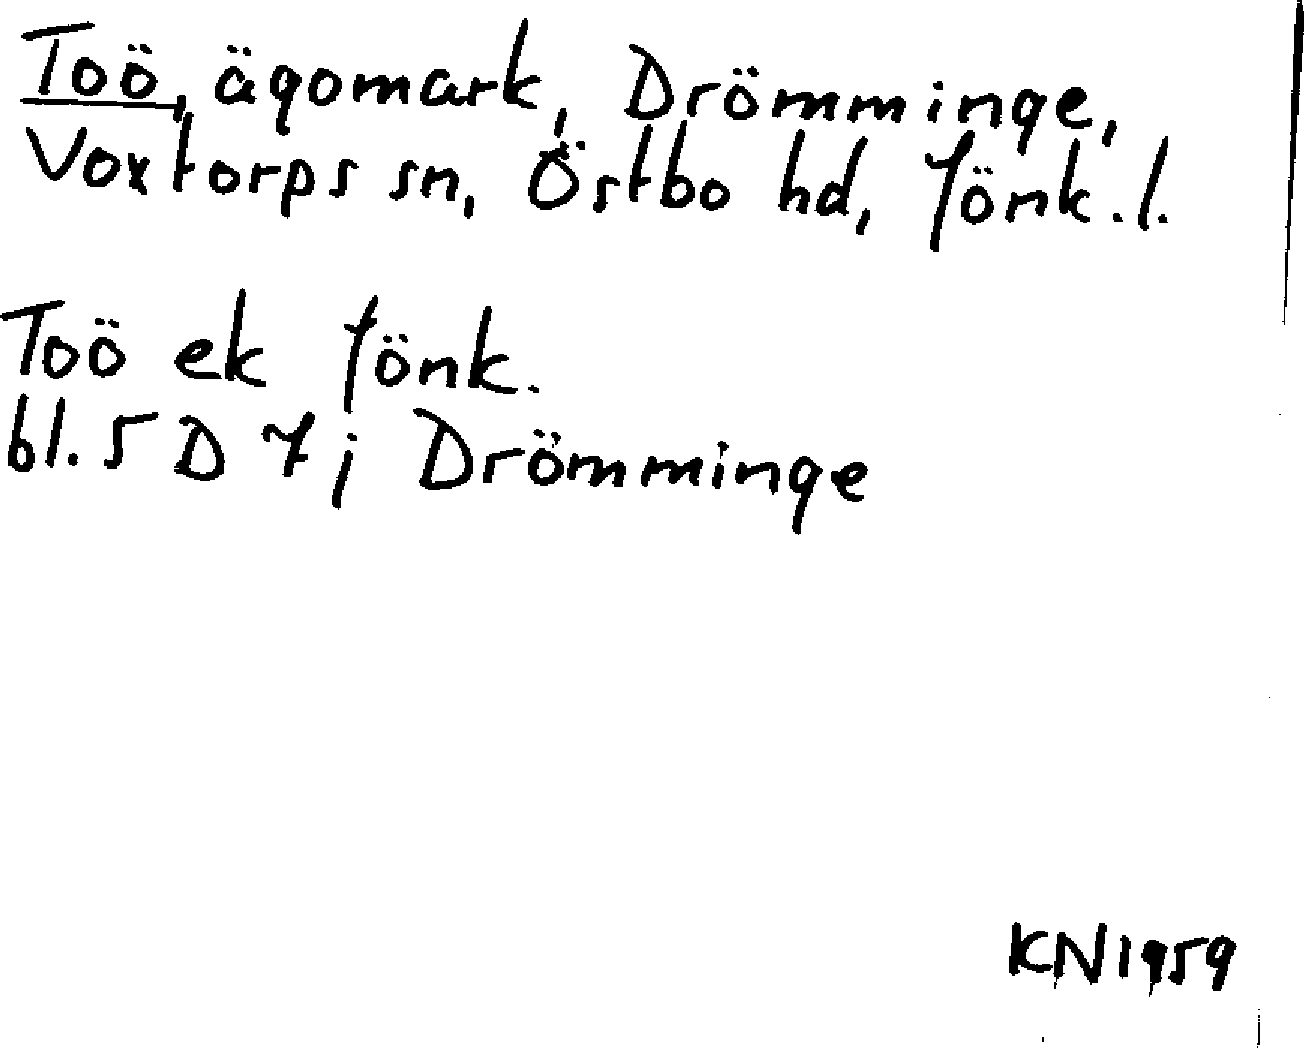 Toö, ägomark, Drömminge,
Voxtorps sn, Östbo hd, Jönk. l.
Toö ek Jönk.
bl. 5 D 7 j Drömminge
KN 1959